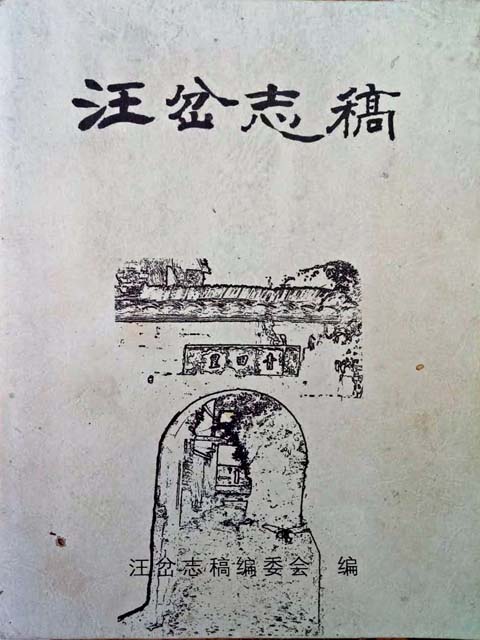 汪岔志稿
里回
汪岔志稿编委会 编